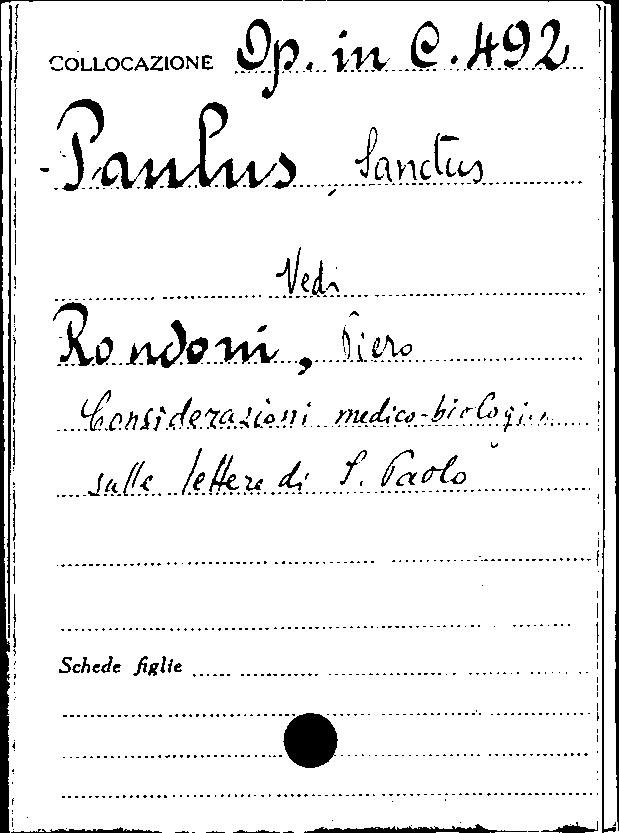 COLLOCAZIONE Op. in C. 492
Paulus, Sanctus
Vedi
Rondoni, Piero
Considerazioni medico-biologiche
sulle lettere di S. Paolo
Schede figlie